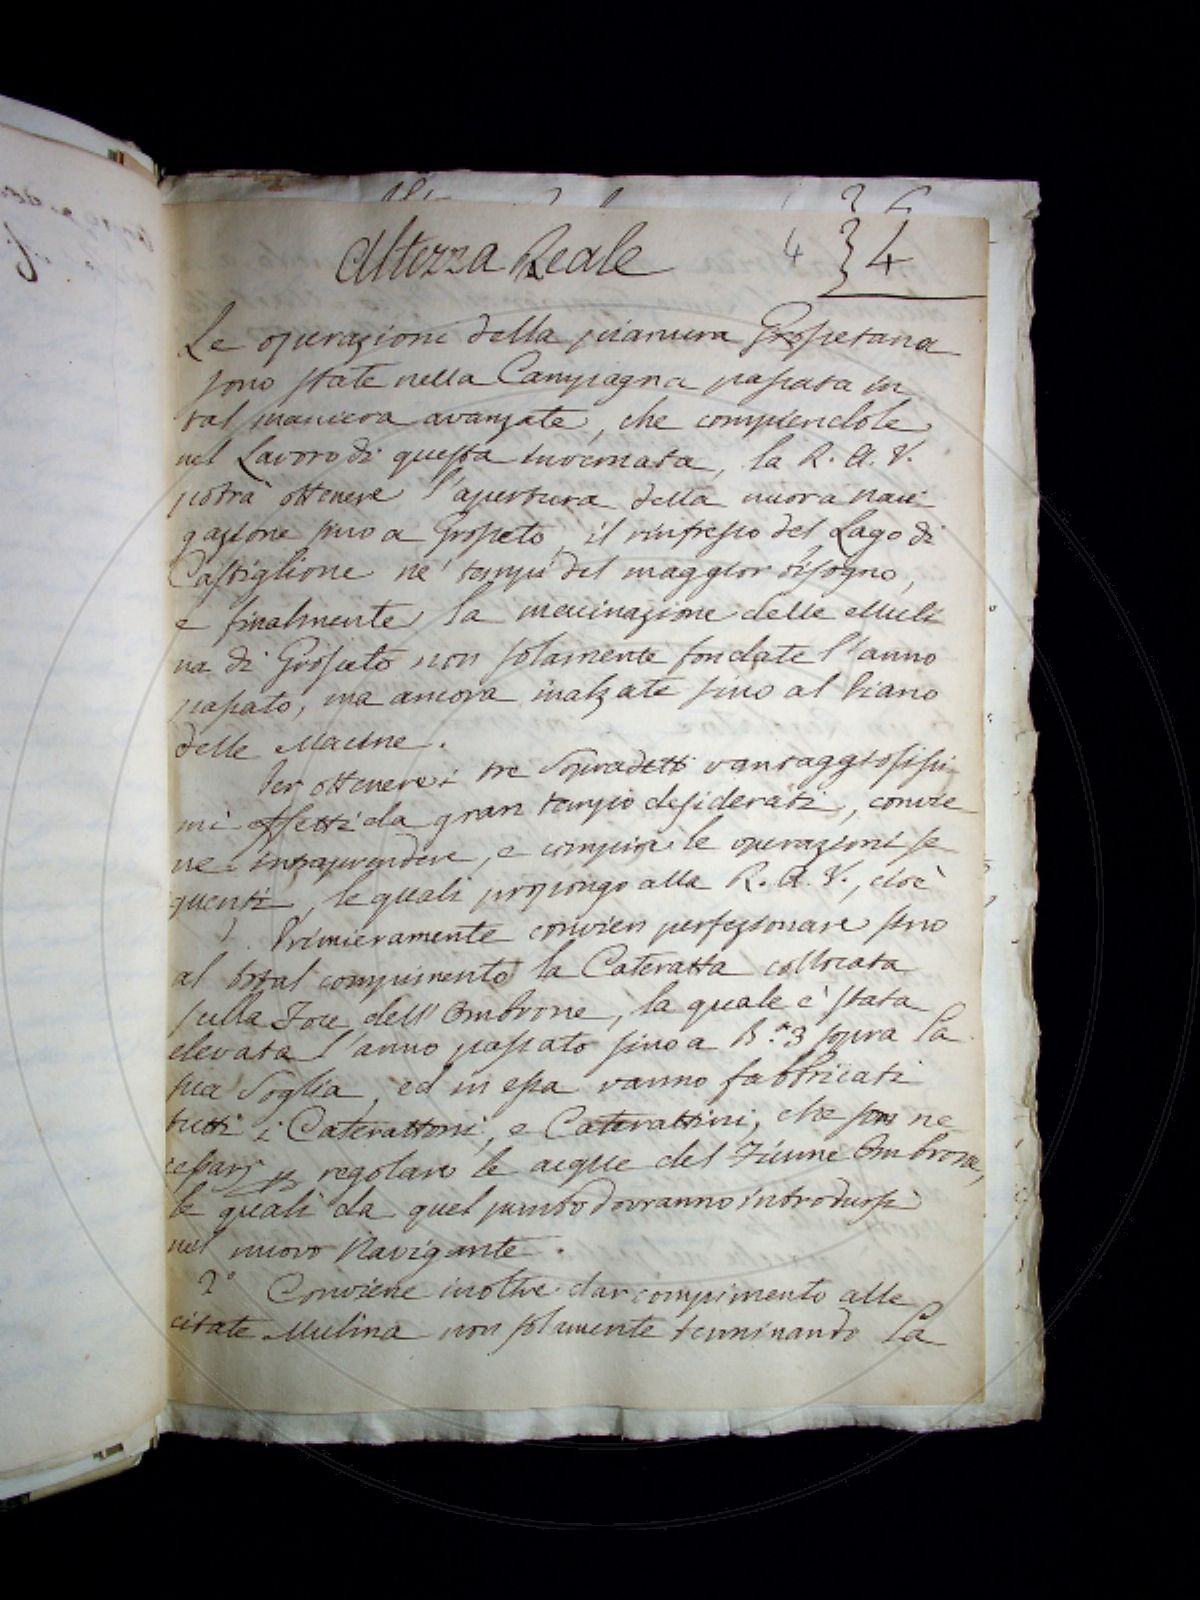 4 } 4
Altezza Reale
Le operazioni della pianura Grossetana
sono state nella Campagna passata in
tal maniera avanzate, che compiendole
nel Lavoro di questa invernata, la R. A. V.
potrà ottenere l'apertura della nuova navi
gazione sino a Grosseto, il rinfresco del Lago di
Castiglione ne' tempi del maggior bisogno,
e finalmente la macinazione delle Muli
na di Grosseto non solamente fondate l'anno
passato, ma ancora inalzate sino al Piano
delle Macine.
Per ottenere i tre Sopradetti vantaggiosissi
mi effetti da gran tempo desiderati, convie
ne intraprendere, e compire le operazioni se
guenti, le quali propongo alla R. A. V., cioè
Primieramente convien perfezionare sino
al total compimento la Cateratta collocata
sulla Foce dell'Ombrone, la quale è stata
elevata l'anno passato sino a B.a 3 sopra la
sua Soglia, ed in essa vanno fabbricati
tutti i Caterattoni, e Caterattini, che son ne
cessarj p regolare le acque del Fiume Ombrone,
le quali da quel punto dovranno introdursi
nel nuovo Navigante.
2° Conviene inoltre dar compimento alle
citate Mulina non solamente terminando la